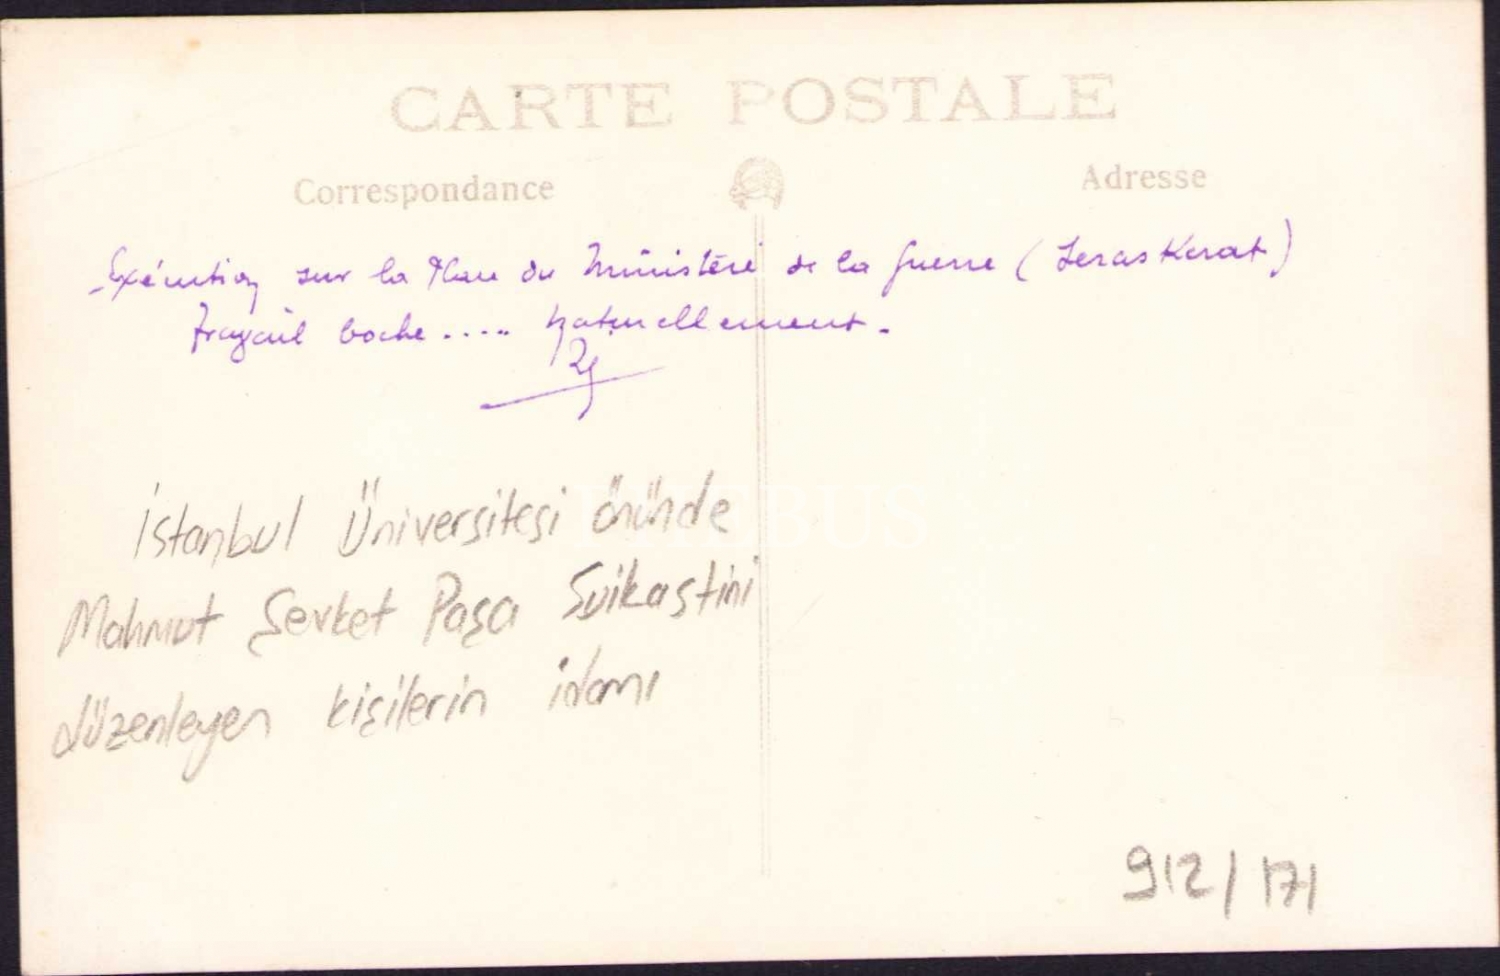 CARTE POSTALE
Correspondance
Adresse
Exécution sur la Place du Ministère de la guerre (Seraskerat)
travail boche ..... naturellement.
İstanbul Üniversitesi önünde
Mahmut Şevket Paşa Suikastini
düzenleyen kişilerin idamı
912/171
PHEBUS